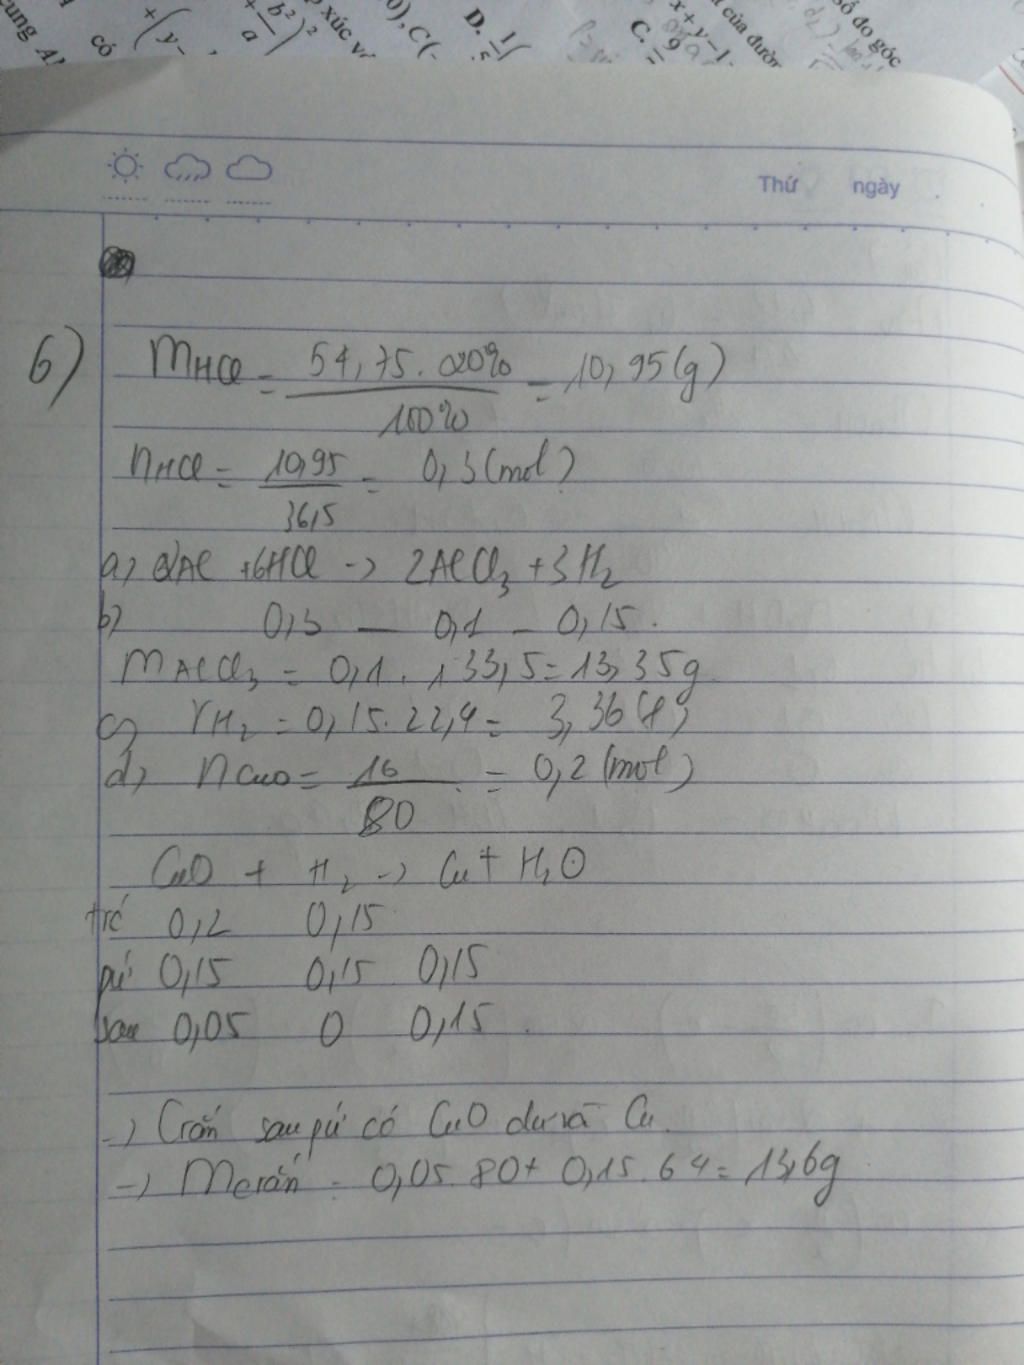 cung A
có
+ (y-
+ b²/a )²
xúc v
0), C(-
D. 1/5 (
x + y - 1
C. 9
của đườn
số đo góc
Thứ ngày
6) mHCl = 54,75.20% / 100% = 10,95(g)
nHCl = 10,95 / 36,5 = 0,3(mol)
a) 2Al + 6HCl -> 2AlCl3 + 3H2
b) 0,3 — 0,1 — 0,15.
mAlCl3 = 0,1 . 133,5 = 13,35g
c) VH2 = 0,15.22,4 = 3,36(l)
d) nCuO = 16 / 80 = 0,2 (mol)
CuO + H2 -> Cu + H2O
trc 0,2 0,15
pứ 0,15 0,15 0,15
sau 0,05 0 0,15
-> Crắn sau pứ có CuO dư và Cu.
-> Mcrắn = 0,05.80 + 0,15.64 = 13,6g